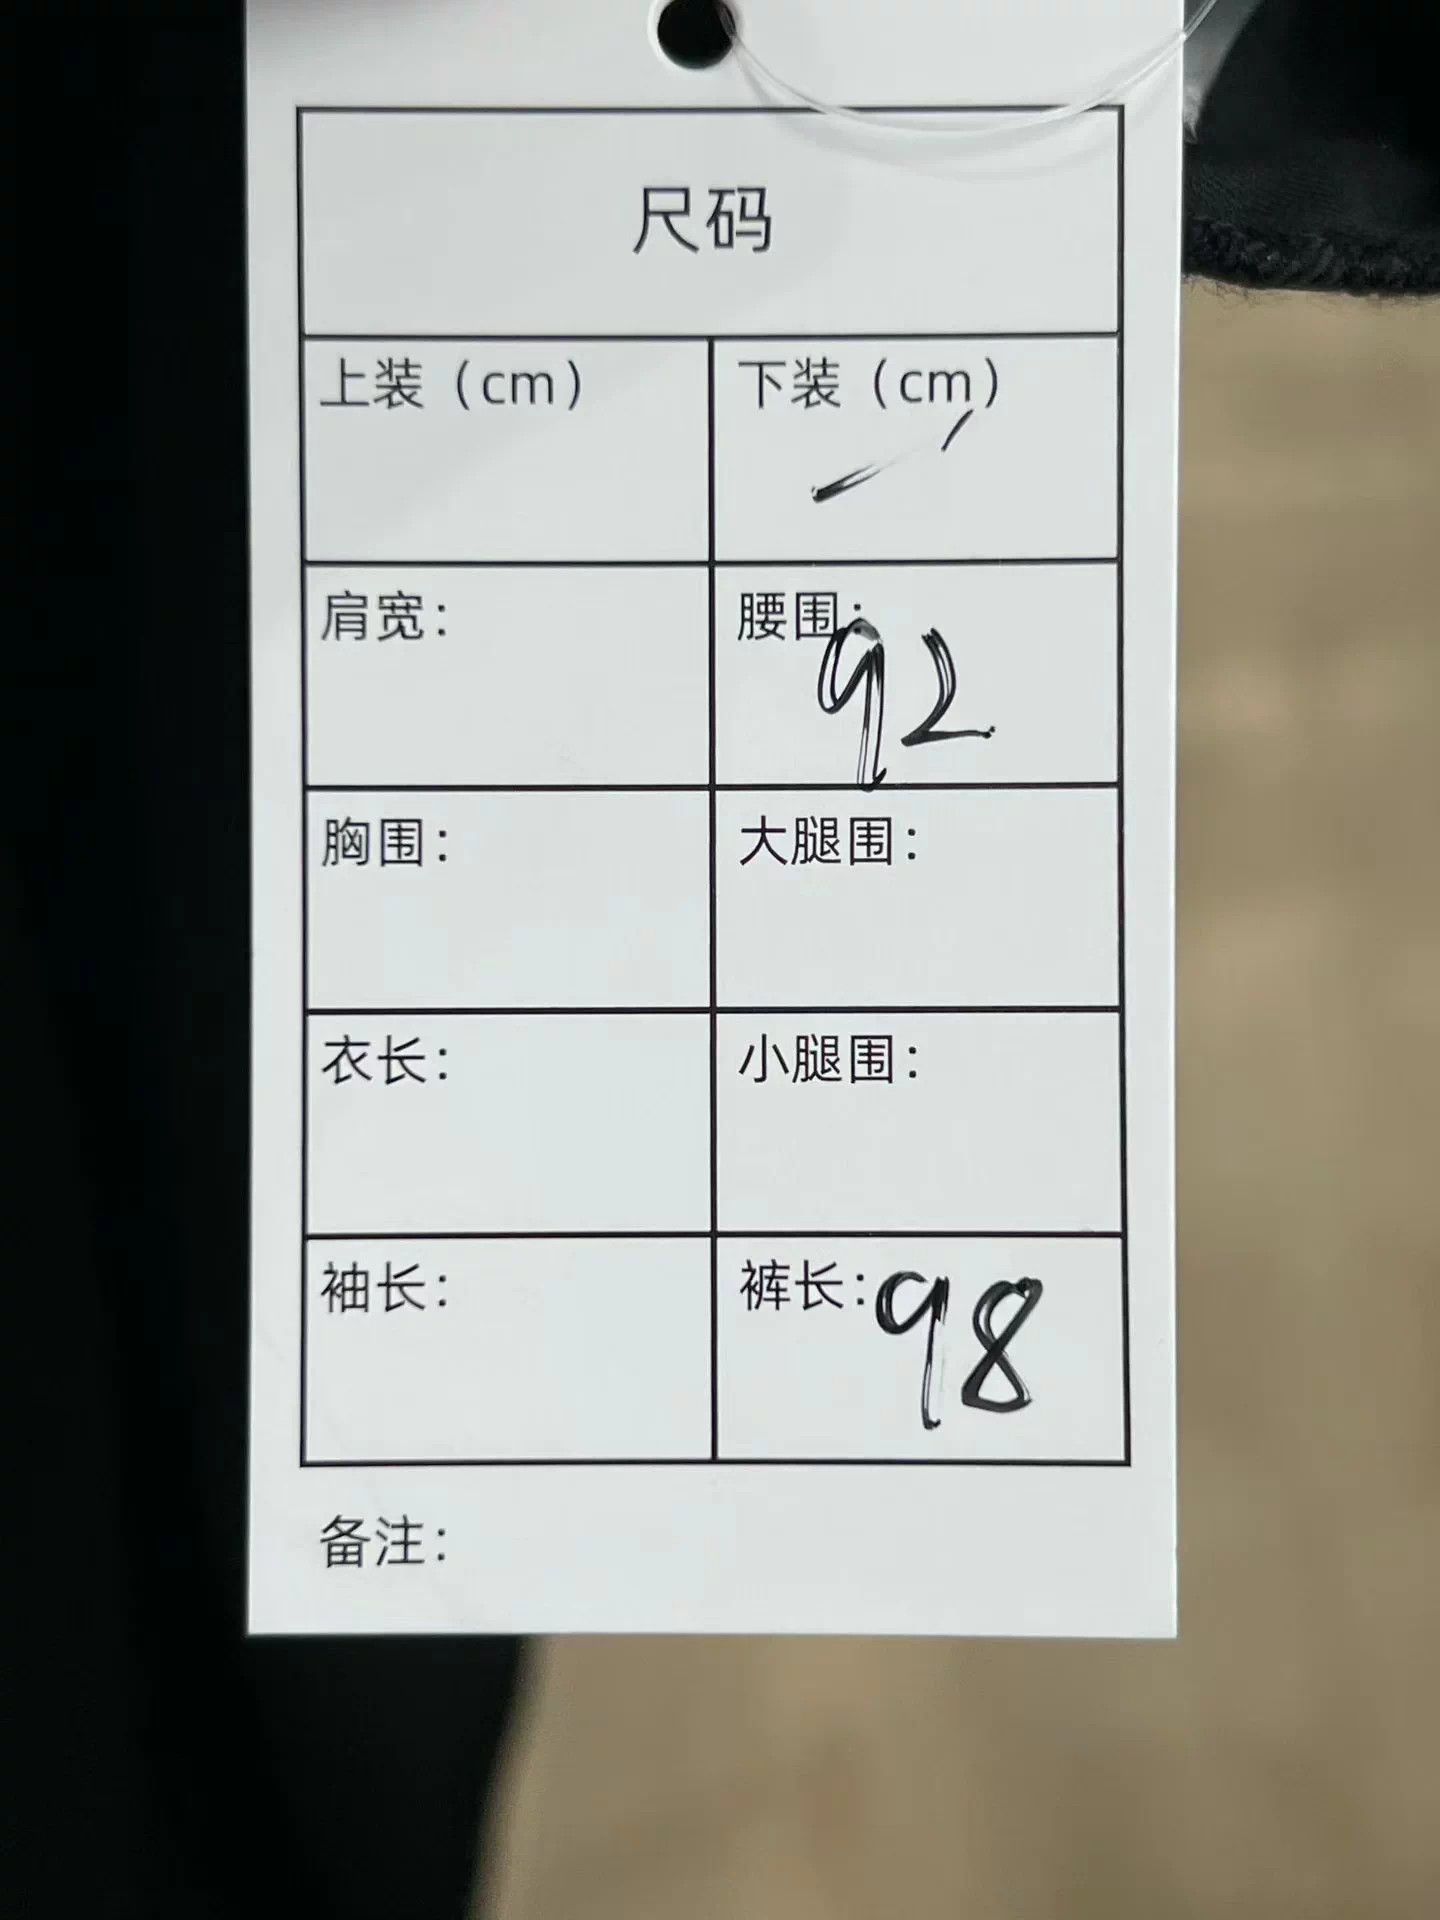 尺码
上装（cm） 下装（cm）
肩宽： 腰围：92
胸围： 大腿围：
衣长： 小腿围：
袖长： 裤长：98
备注：